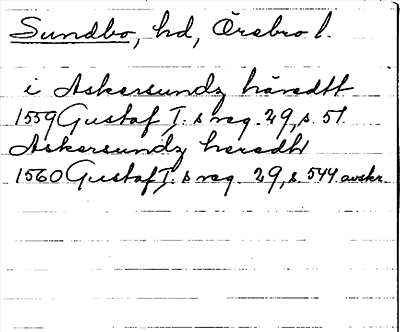 Sundbo, hd, Örebro l.
i Askersundz häredtt
1559 Gustaf I:s reg. 29, s. 51.
Askersundz heredh
1560 Gustaf I:s reg. 29, s. 544 avskr.